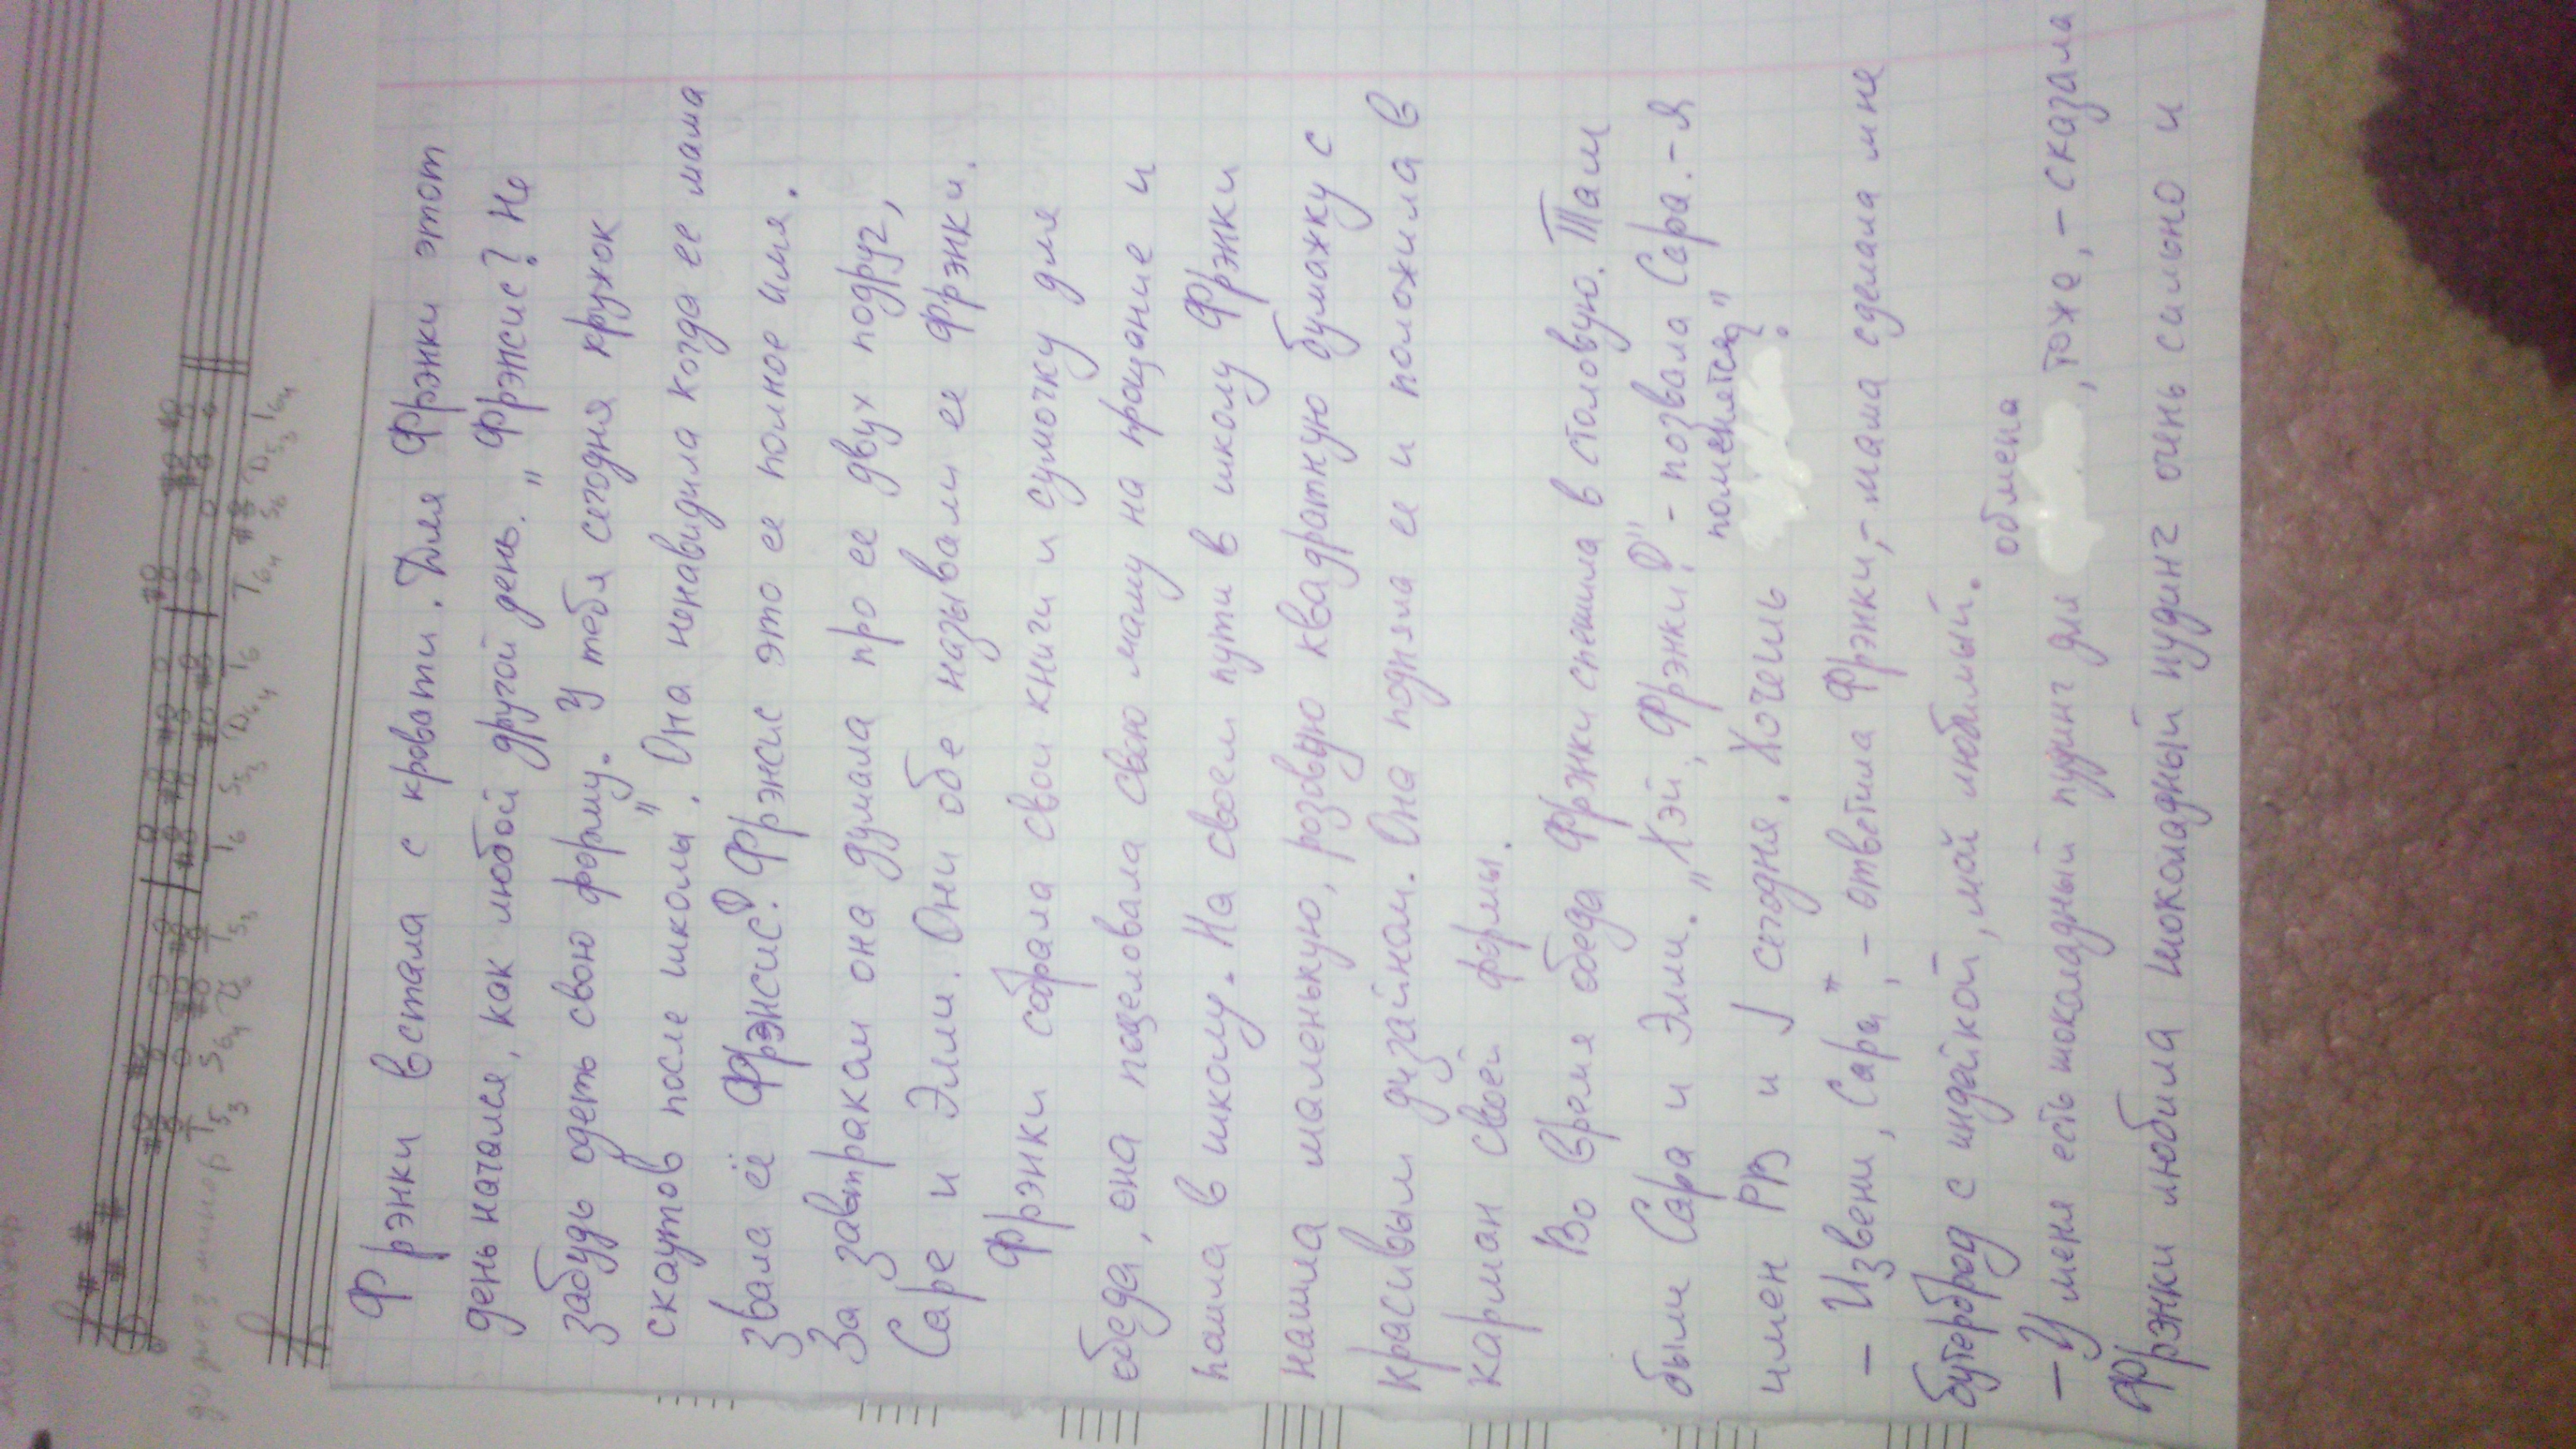 до диез минор
T53 S64 T6 S53 D64 T6 T64 S6 D53 T64
Фрэнки встала с кровати. Для Фрэнки этот
день начался, как любой другой день. „ Фрэнсис? Не
забудь одеть свою форму. У тебя сегодня кружок
скаутов после школы". Она ненавидила когда ее мама
звала её Фрэнсис! Фрэнсис это ее полное имя.
За завтраком она думала про ее двух подруг,
Саре и Элли. Они обе называли ее Фрэнки.
Фрэнки собрала свои книги и сумочку для
обеда, она поцеловала свою маму на прощание и
пошла в школу. На своем пути в школу Фрэнки
нашла маленькую, розовую квадратную бумажку с
красивым дизайном. Она подняла ее и положила в
карман своей формы.
Во время обеда Фрэнки спешила в столовую. Там
были Сара и Элли. „Хэй, Фрэнки!" - позвала Сара. - Я
имен PB и J сегодня. Хочешь поменятся?"
- Извени, Сара, - ответила Фрэнки, - мама сделала мне
бутерброд с индейкой, мой любимый.
- У меня есть шоколадный пудинг для обмена, тоже, - сказала
Фрэнки любила шоколадный пудинг очень сильно и